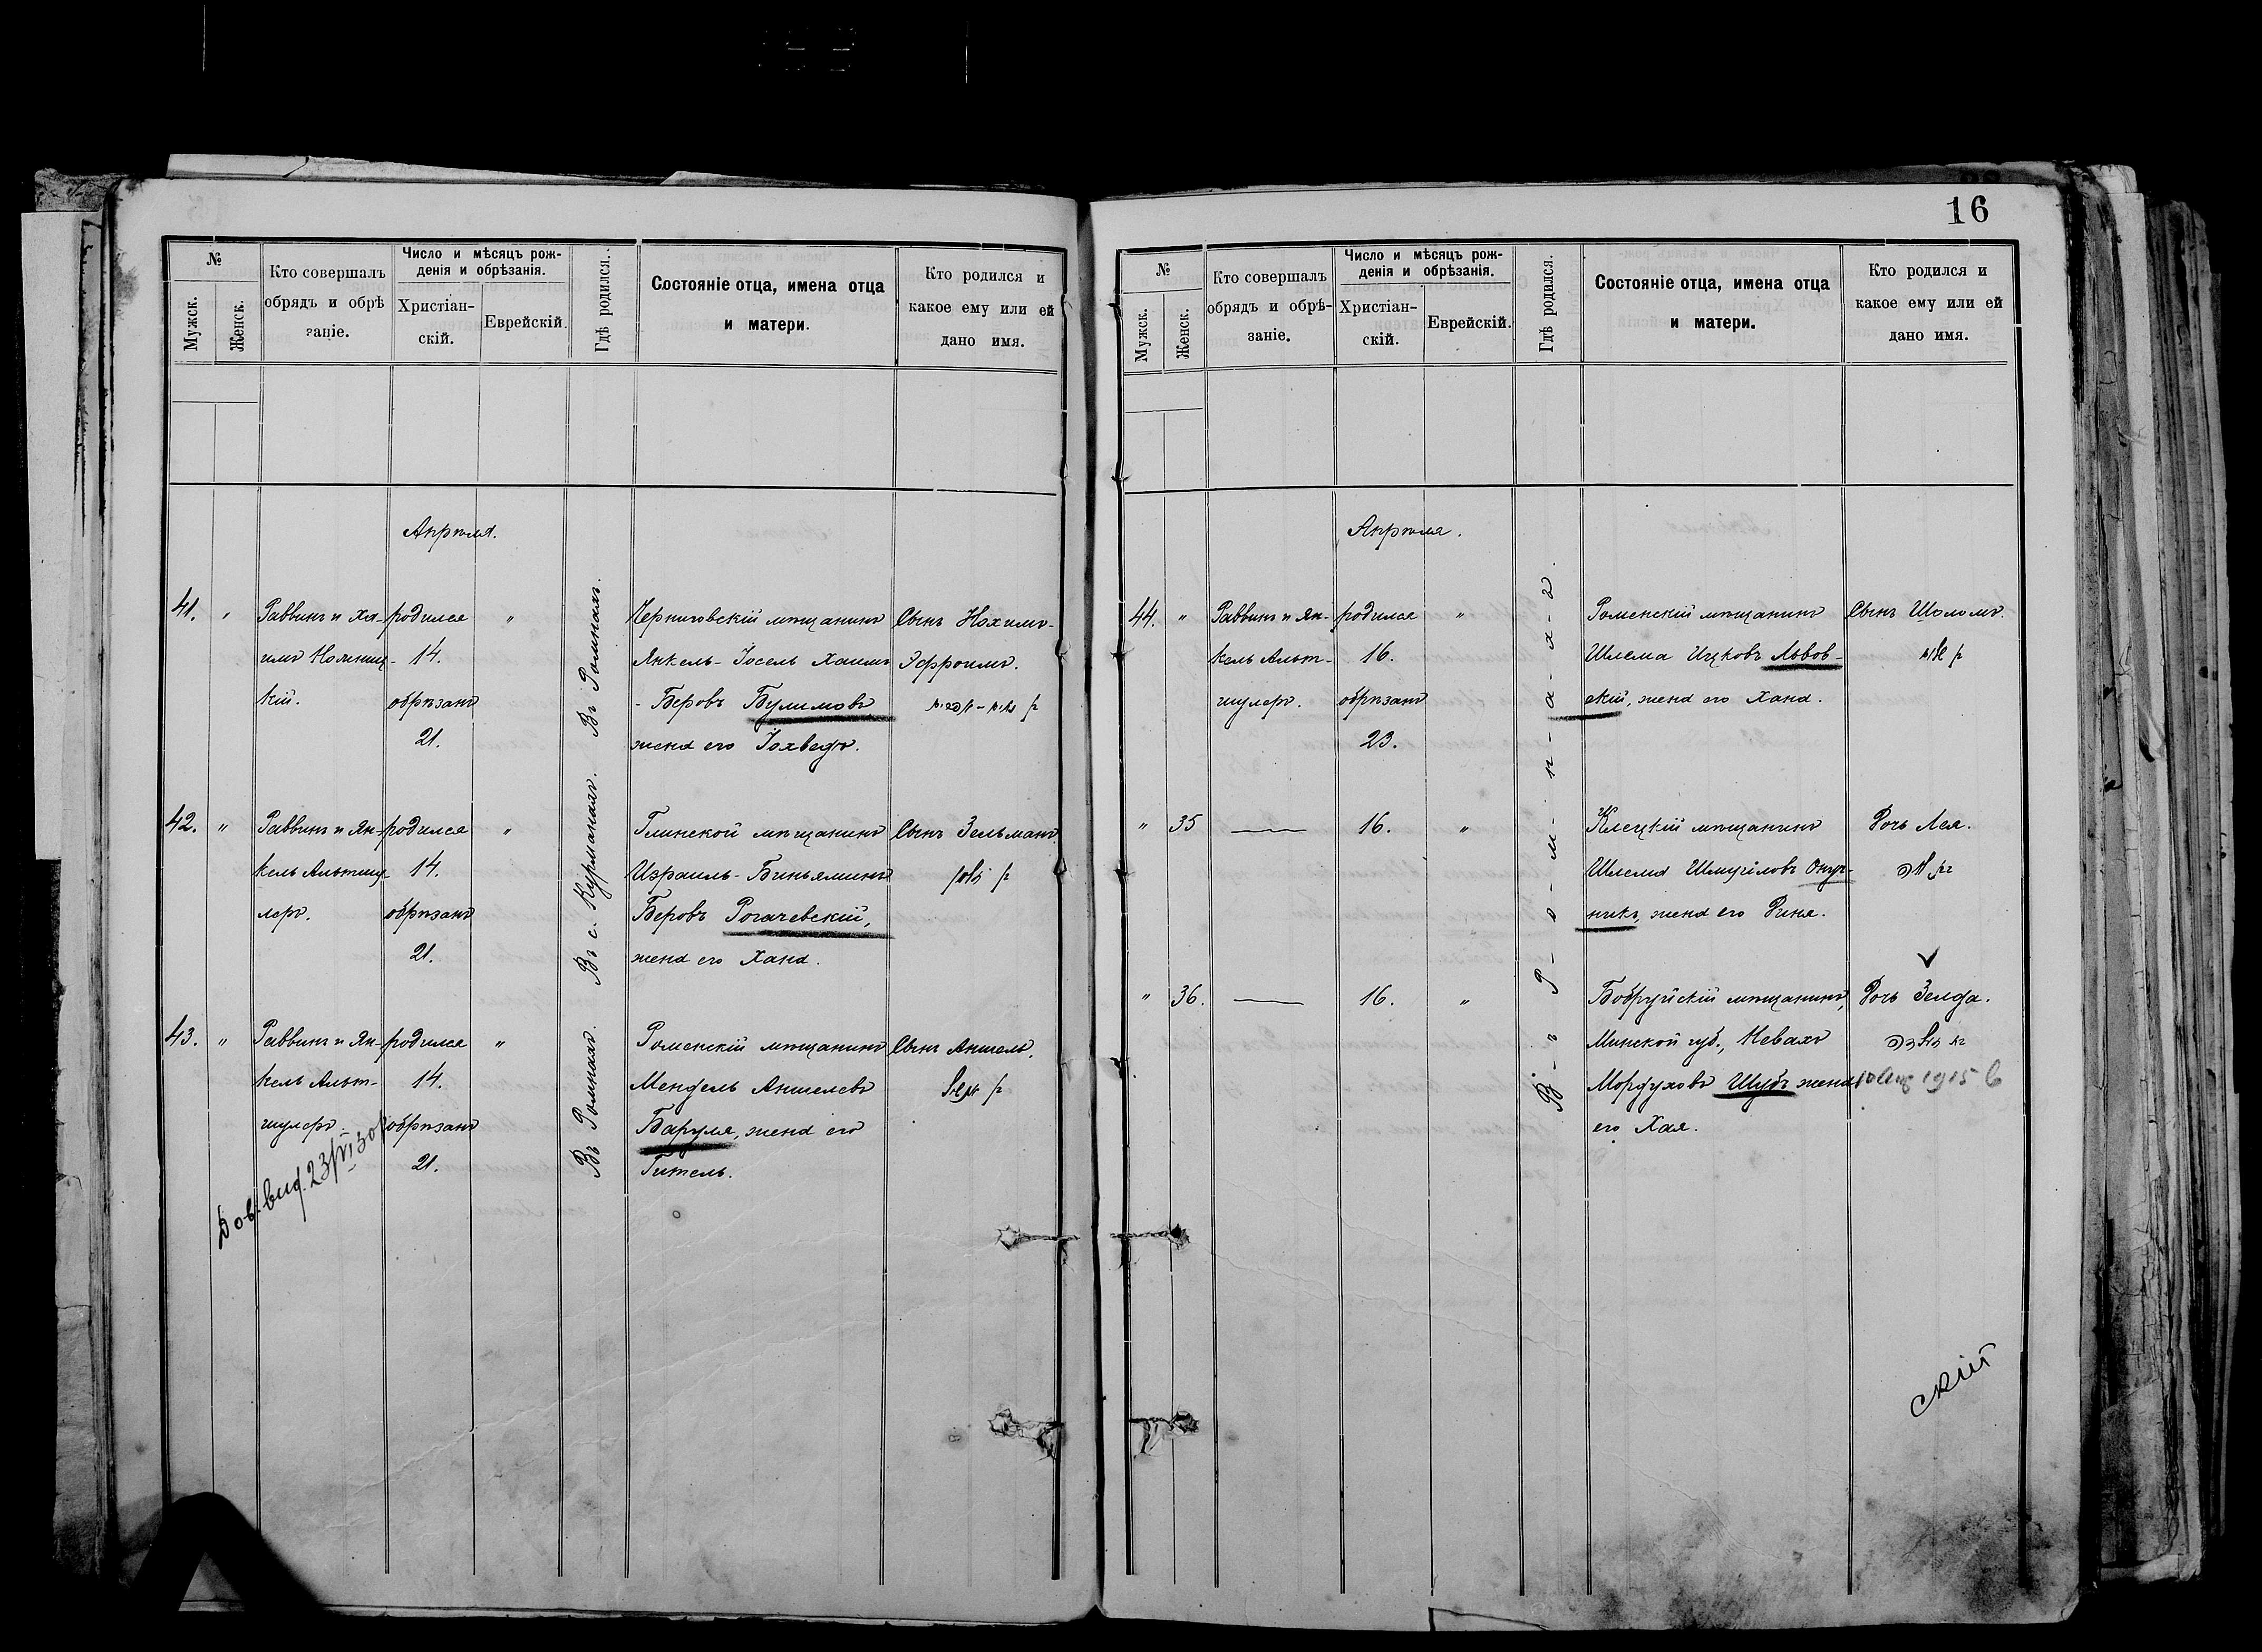 16
№
Мужск.
Женск.
Кто совершалъ
обрядъ и обрѣ
заніе.
Число и мѣсяцъ рож-
денія и обрѣзанія.
Христіан-
скій.
Еврейскій.
Гдѣ родился.
Состояніе отца, имена отца
и матери.
Кто родился и
какое ему или ей
дано имя.
Апрѣля.
41.
"
Раввинъ и Ха-
имъ
кій.
родился
14.
обрѣзанъ
21.
"
Въ Ромнахъ.
Черниговскій мѣщанинъ
Янкель-Іосель Хаимъ
-Беровъ Булимовъ
жена его Іохведъ.
Сынъ Нохимъ-
Эфроимъ.
42.
"
Раввинъ и Ян-
кель Альтшу-
леръ.
родился
14.
обрѣзанъ
21.
"
Въ с. Курманахъ.
Глинской мѣщанинъ
Израиль-Биньяминъ
Беровъ Рогачевскій,
жена его Хана.
Сынъ Зельманъ.
43.
"
Раввинъ и Ян-
кель Альт-
шулеръ.
родился
14.
обрѣзанъ
21.
"
Въ Ромнахъ.
Роменскій мѣщанинъ
Мендель Аншелевъ
Баруля, жена его
Гитель.
Сынъ Аншель.
Дов. вид. 23/VI 30
№
Мужск.
Женск.
Кто совершалъ
обрядъ и обрѣ-
заніе.
Число и мѣсяцъ рож-
денія и обрѣзанія.
Христіан-
скій.
Еврейскій.
Гдѣ родился.
Состояніе отца, имена отца
и матери.
Кто родился и
какое ему или ей
дано имя.
Апрѣля.
44.
"
Раввинъ и Ян-
кель Альт-
шулеръ.
родился
16.
обрѣзанъ
23.
"
Въ-Р-о-м-н-а-х-ъ.
Роменскій мѣщанинъ
Шлема Ицковъ Львов-
скій, жена его Хана.
Сынъ Шоломъ.
"
35
16.
"
Клецкій мѣщанинъ
Шлема Шмуйловъ
жена его
Дочь Лея.
"
36.
16.
"
Бобруйскій мѣщанинъ,
Минской губ., Невахъ
Мордуховъ Шубъ жена
его Хая.
Дочь Зелда.
1915
скій